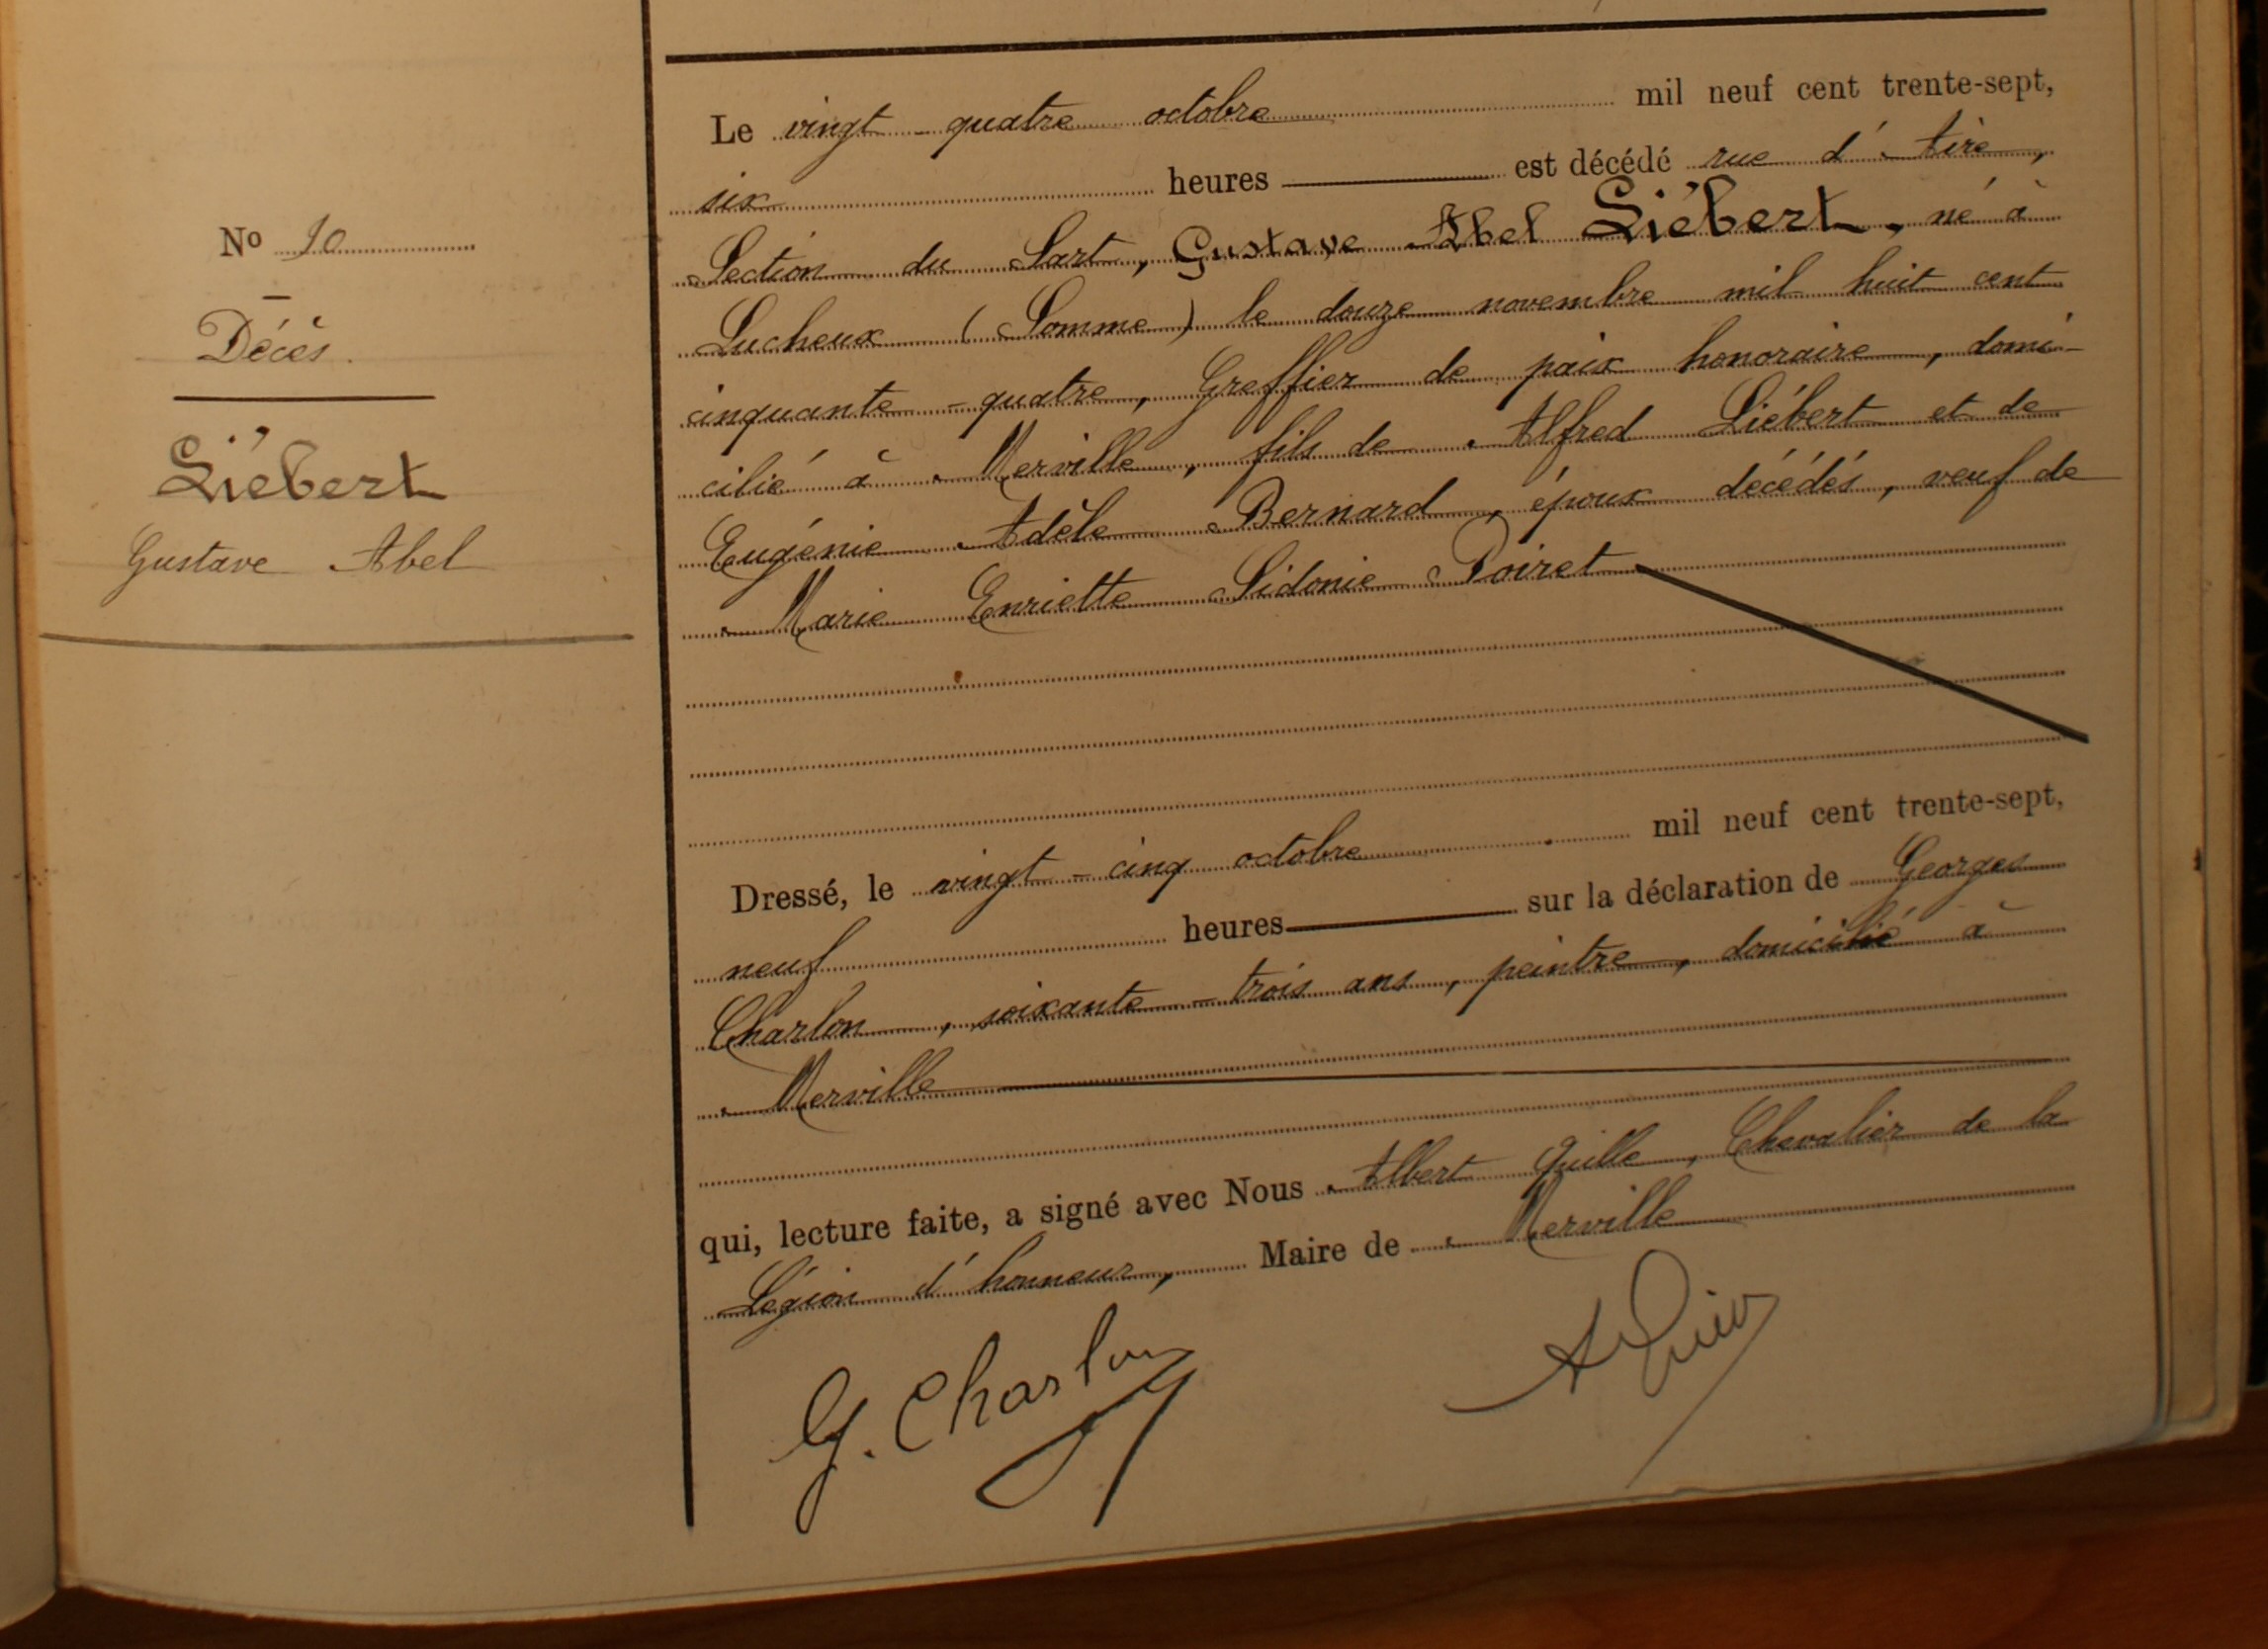 Nº 10
Décès.
Liébert
Gustave Abel
Le vingt-quatre octobre mil neuf cent trente-sept,
six heures est décédé rue d'Aire,
Section du Sart, Gustave Abel Liébert, né à
Lucheux (Somme) le douze novembre mil huit cent
cinquante-quatre, Greffier de paix honoraire, domi-
cilié à Merville, fils de Alfred Liébert et de
Eugénie Adèle Bernard, époux décédés, veuf de
Marie Enriette Sidonie Poiret
Dressé, le vingt-cinq octobre mil neuf cent trente-sept,
neuf heures sur la déclaration de Georges
Charlon, soixante-trois ans, peintre, domicilié à
Merville
qui, lecture faite, a signé avec Nous Albert Quille, Chevalier de la
Légion d'honneur, Maire de Merville
G. Charlon